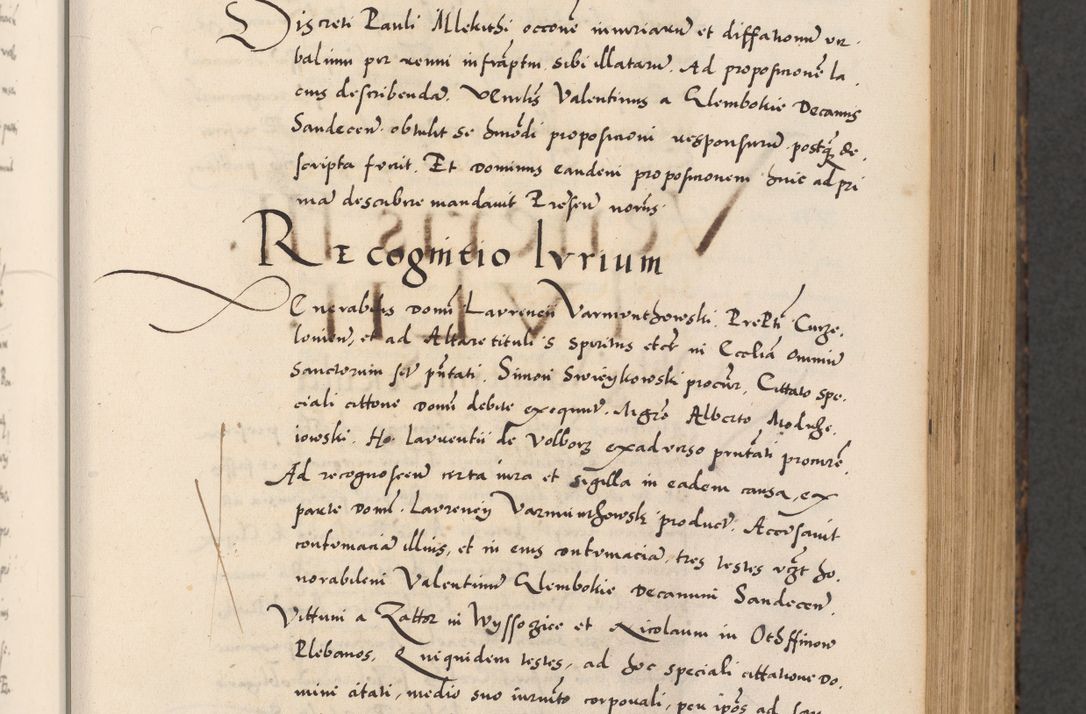 Discreti Pauli Mlekithi occone iniuriarum et diffationum ver
balium per reum infrascptm sibi illatarum. Ad proposicione la
cius describenda. Venlis Valentinus a Glembokie Decanus
Sandecen obtulit se hmodi proposicioni responsurum postq de
scripta fuerit. Et Dominus eandem proposicionem hinc ad pri
ma describere mandavit Presen noriis
Recognitio Iurium
Venerabilis Domi Laurencii Varmunthowski. Prepti Curze
lonien, et ad Altare tituli S Spiritus etc in Ecclia Omnium
Sanctorum pntati. Simon Swieykowski procur, Cittato spe
ciali cittone Domi debite exequut. Mgro Alberto Modrze
iowski. Ho. Laurentii de Volborz exadverso pntati procure
Ad recognoscen certa iura et sigilla in eadem causa, ex
parte Domi. Laurencii Varmunthowski product. Accusavit
contumacia illius, et in eius contumacia, tres testes vzt ho
norabilem Valentinum Glembokie Decanum Sandecen.
Vittum a Zathor in Wyssoczice et Nicolaum in Othffinow
Plebanos. Quiquidem testes, ad hoc speciali cittatione Do
mini citati, medio suo iurato corporali, per ipos ad